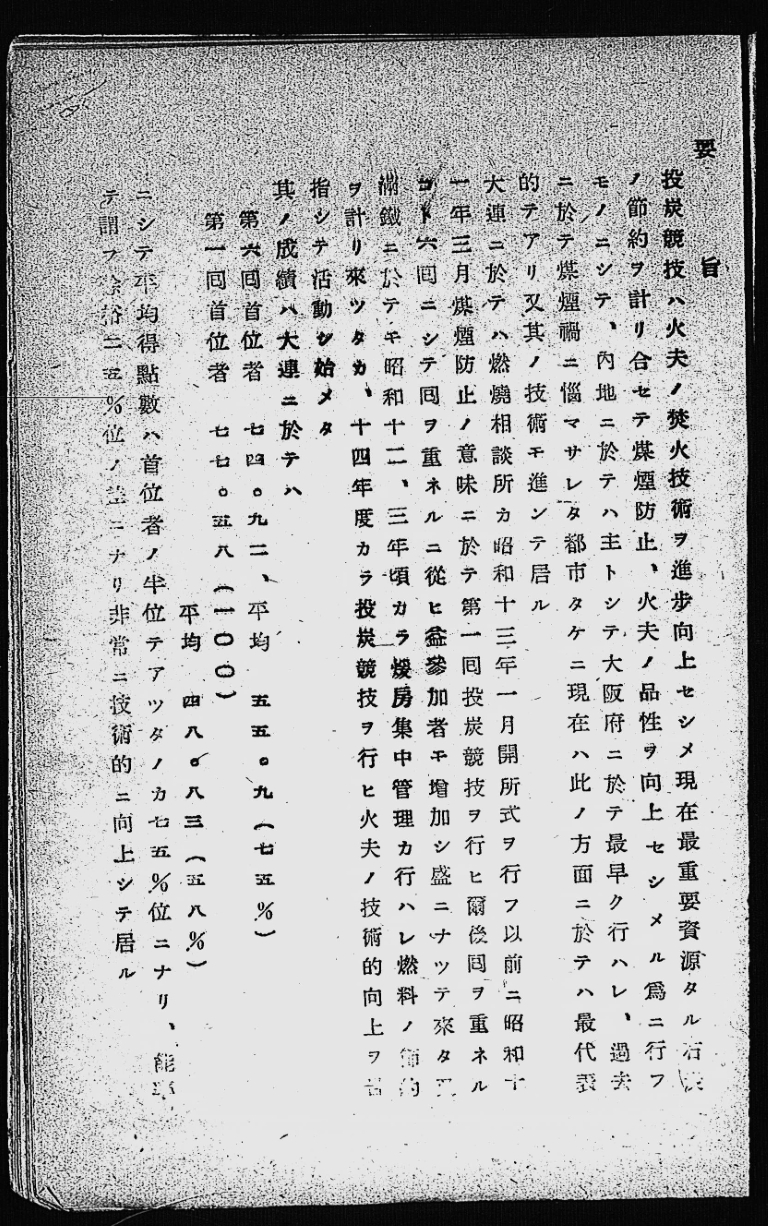 要旨
投炭競技ハ火夫ノ焚火技術ヲ進步向上セシメ現在最重要資源タル石炭
ノ節約ヲ計リ合セテ煤煙防止、火夫ノ品性ヲ向上セシメル爲ニ行フ
モノニシテ、內地ニ於テハ主トシテ大阪府ニ於テ最早ク行ハレ、過去
ニ於テ煤煙禍ニ惱マサレタ都市タケニ現在ハ此ノ方面ニ於テハ最代表
的テアリ又其ノ技術モ進ンテ居ル
大連ニ於テハ燃燒相談所カ昭和十三年一月開所式ヲ行フ以前ニ昭和十
一年三月煤煙防止ノ意味ニ於テ第一回投炭競技ヲ行ヒ爾後回ヲ重ネル
コト六回ニシテ回ヲ重ネルニ從ヒ益參加者モ增加シ盛ニナツテ來タ
滿鐵ニ於テモ昭和十二、三年頃カラ煖房集中管理カ行ハレ燃料ノ節約
ヲ計リ來ツタカ、十四年度カラ投炭競技ヲ行ヒ火夫ノ技術的向上ヲ
指シテ活動シ始メタ
其ノ成績ハ大連ニ於テハ
第六回首位者 七四。九二、平均 五五。九(七五%)
第一回首位者 七七。五八(一〇〇)
平均 四八。八三(五八%)
ニシテ平均得點數ハ首位者ノ半位テアツタノカ七五%位ニナリ、能率
テ謂フ餘裕二五%位ノ ニナリ非常ニ技術的ニ向上シテ居ル